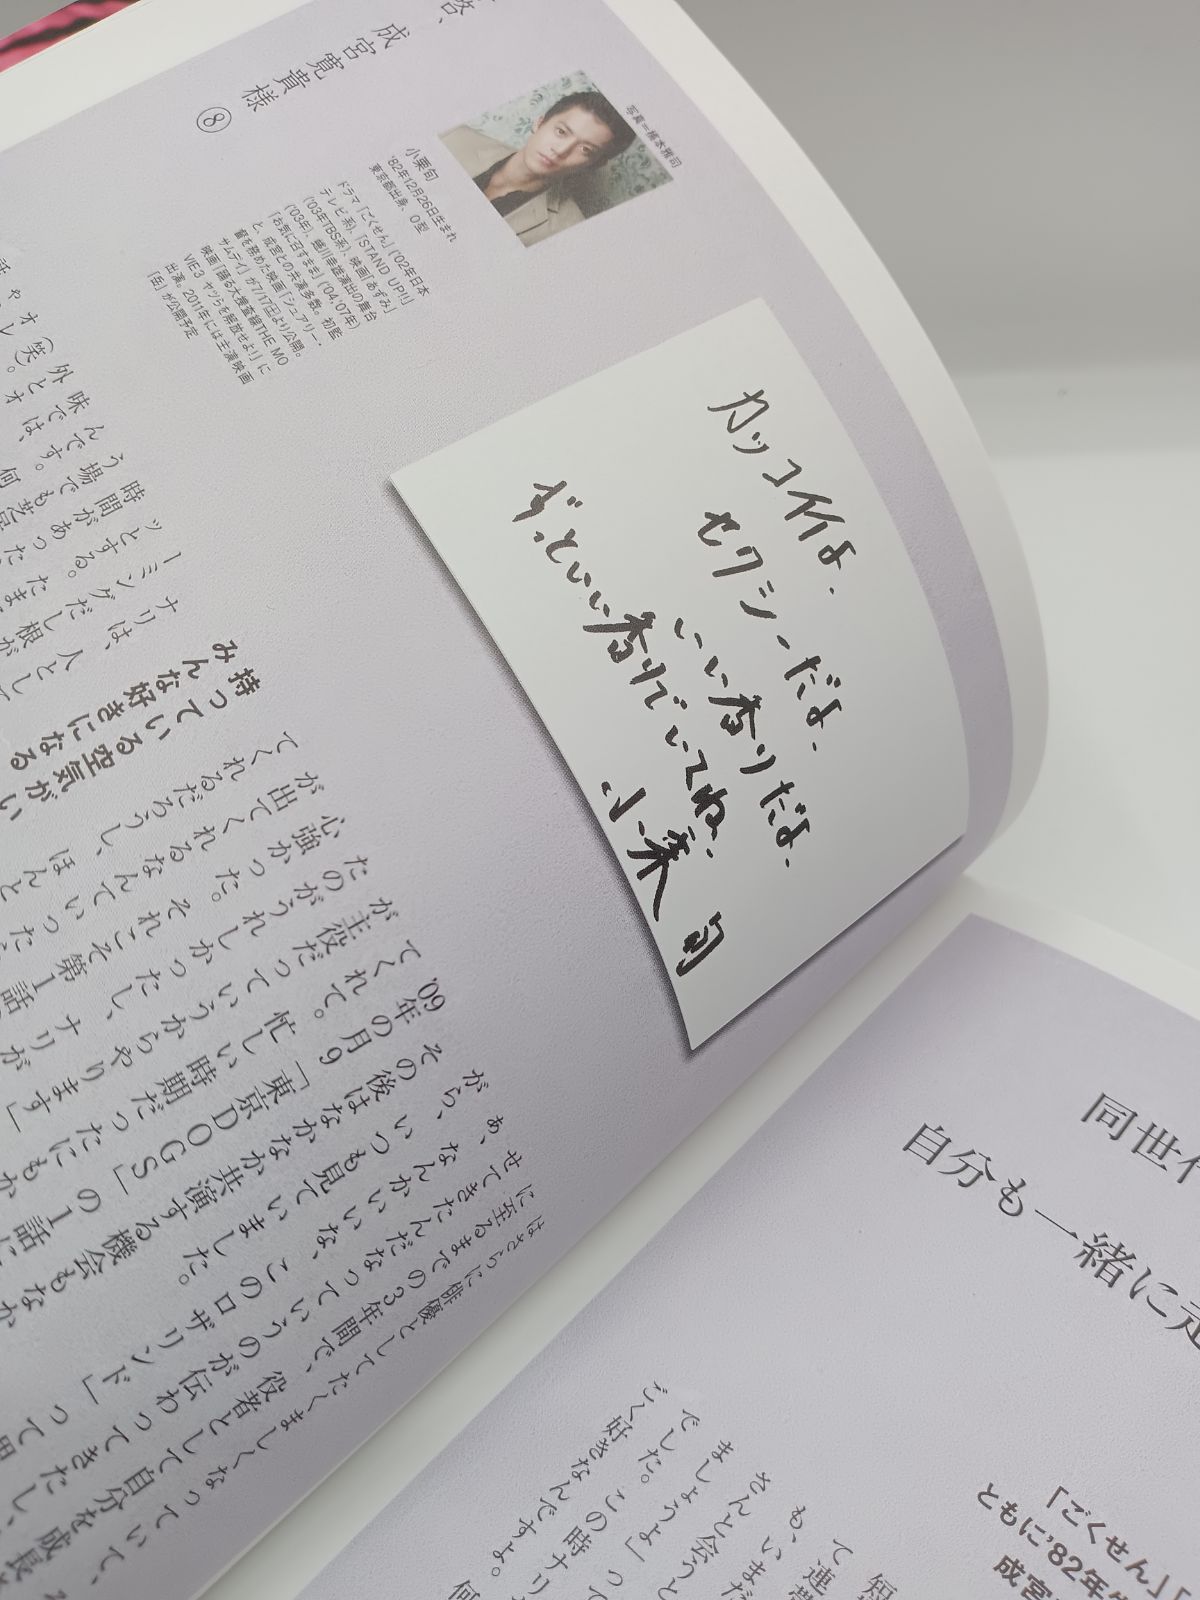 啓、成宮寛貴様 ⑧
写真=橋本雅司
小栗旬
'82年12月26日生まれ
東京都出身、O型
ドラマ「ごくせん」('02年日本
テレビ系)、「STAND UP!!」
('03年TBS系)、映画「あずみ」
('03年)、蜷川幸雄演出の舞台
「お気に召すまま」('04,'07年)
と、成宮との共演多数。初監
督を務めた映画「シュアリー・
サムデイ」が7/17(土)より公開。
映画「踊る大捜査線THE MO
VIE3 ヤツらを解放せよ!」に
出演。2011年には主演映画
「岳」が公開予定
カッコイイよ、
セクシーだよ、
いい香りだよ、
ずっといい香りでいてね、
小栗旬
はさらに俳優としてたくましくなっていて、
に至るまでの3年間で、役者として自分を成長さ
せてきたんだなっていうのが伝わってきたし、
ぁ、なんかいいな、このロザリンド」って思
がら、いつも見ていました。
その後はなかなか共演する機会もなか
'09年の月9「東京DOGS」の1話に
てくれて。忙しい時期だったにもか
が主役だっていうからやります」
たのがうれしかったし、ナリが
心強かった。それこそ第1話
が出てくれるなんて
てくれるだろうし、ほんと
持っている空気がい
みんな好きになる
ナリは、人として
ーミングだし根が
同世
自分も一緒に走
「ごくせん」「
ともに'82年生
成宮
短
て連帯
も、いまだ
さんと会うと
ましょうよ」って
でした。この時ナリ
ごく好きなんですよ。何